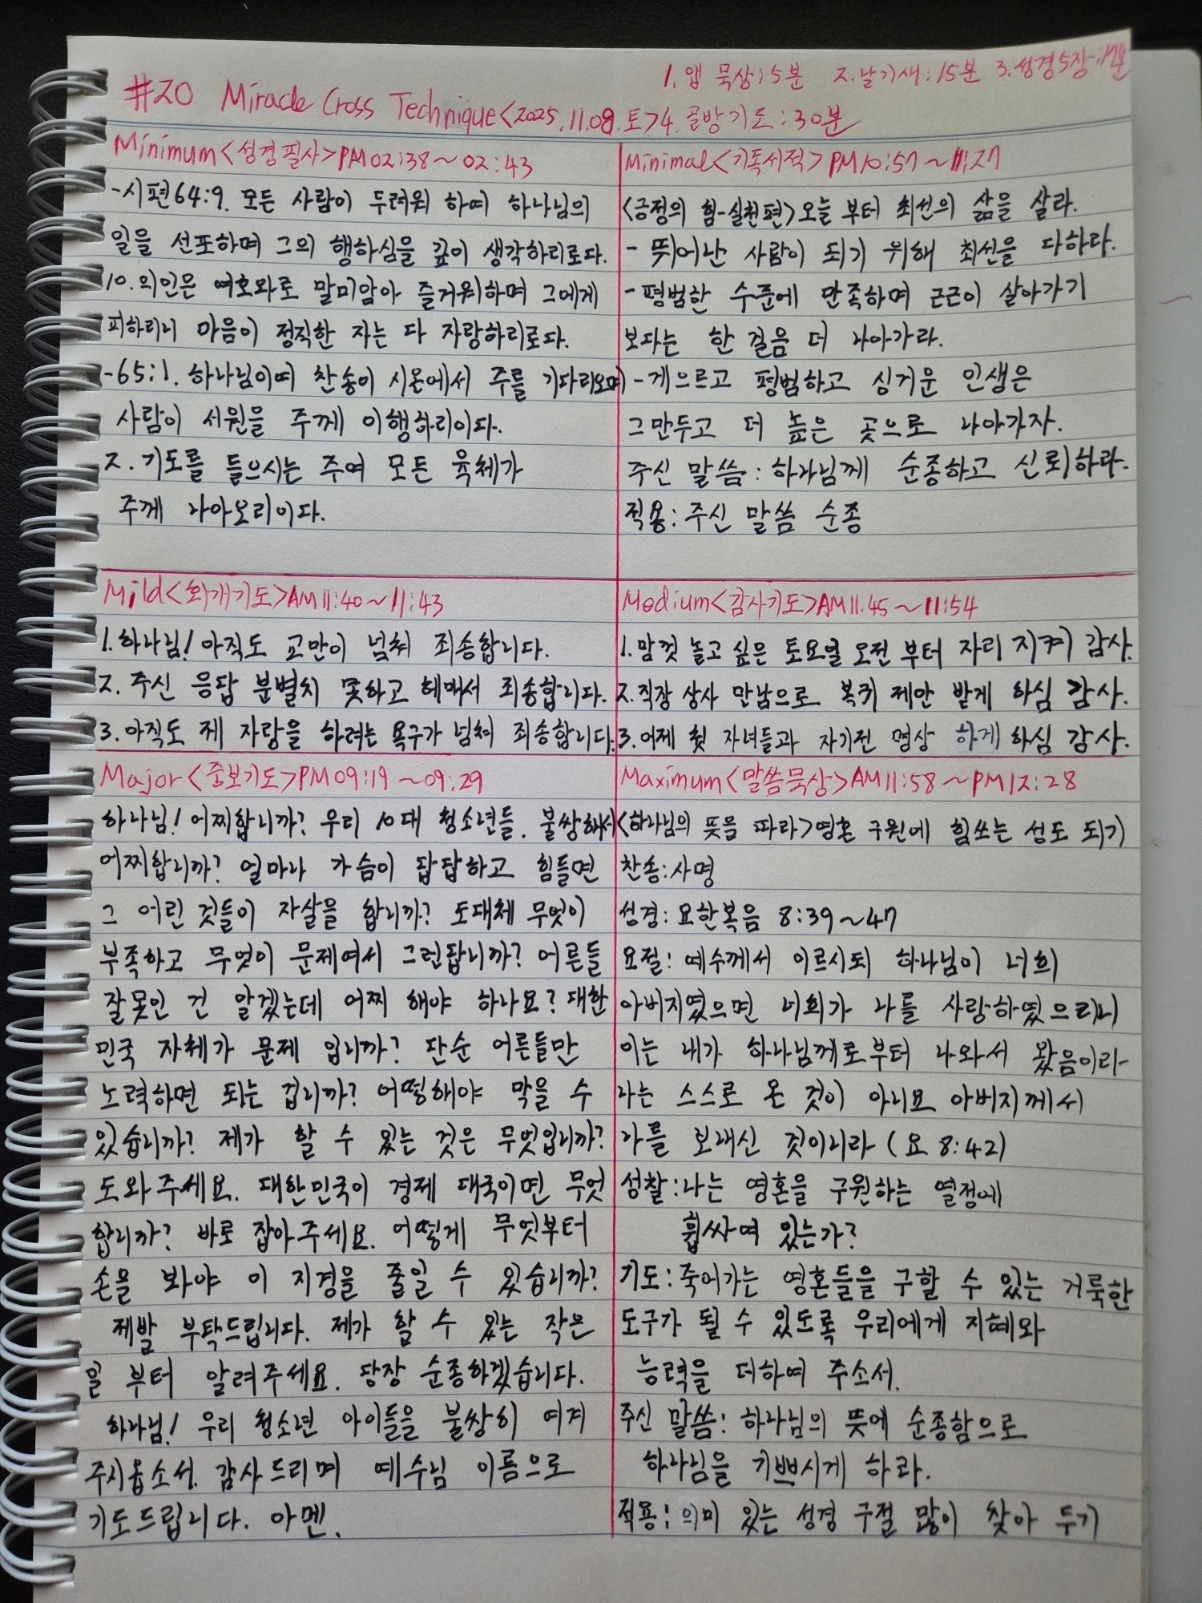 1. 앱 묵상:5분 2. 날기새:15분 3. 성경5장:17분
#20 Miracle Cross Technique<2025.11.08.토>4. 골방기도:30분
Minimum<성경필사>PM02:38~02:43
-시편64:9. 모든 사람이 두려워 하여 하나님의
일을 선포하며 그의 행하심을 깊이 생각하리로다.
10. 의인은 여호와로 말미암아 즐거워하며 그에게
피하리니 마음이 정직한 자는 다 자랑하리로다.
-65:1. 하나님이여 찬송이 시온에서 주를 기다리오며
사람이 서원을 주께 이행하리이다.
2. 기도를 들으시는 주여 모든 육체가
주께 나아오리이다.
Minimal<기독서적>PM10:57~11:27
<긍정의 힘-실천편>오늘 부터 최선의 삶을 살라.
- 뛰어난 사람이 되기 위해 최선을 다하라.
- 평범한 수준에 만족하며 근근이 살아가기
보다는 한 걸음 더 나아가라.
- 게으르고 평범하고 싱거운 인생은
그만두고 더 높은 곳으로 나아가자.
주신 말씀: 하나님께 순종하고 신뢰하라.
적용: 주신 말씀 순종
Mild<회개기도>AM11:40~11:43
1. 하나님! 아직도 교만이 넘쳐 죄송합니다.
2. 주신 응답 분별치 못하고 헤매서 죄송합니다.
3. 아직도 제 자랑을 하려는 욕구가 넘쳐 죄송합니다.
Medium<감사기도>AM11:45~11:54
1. 맘껏 놀고 싶은 토요일 오전 부터 자리 지켜 감사.
2. 직장 상사 만남으로 복귀 제안 받게 하심 감사.
3. 어제 첫 자녀들과 자기전 명상 하게 하심 감사.
Major<중보기도>PM09:19~09:29
하나님! 어찌합니까? 우리 10대 청소년들. 불쌍해서
어찌합니까? 얼마나 가슴이 답답하고 힘들면
그 어린 것들이 자살을 합니까? 도대체 무엇이
부족하고 무엇이 문제여서 그런답니까? 어른들
잘못인 건 알겠는데 어찌 해야 하나요? 대한
민국 자체가 문제 입니까? 단순 어른들만
노력하면 되는 겁니까? 어떻해야 막을 수
있습니까? 제가 할 수 있는 것은 무엇입니까?
도와주세요. 대한민국이 경제 대국이면 무엇
합니까? 바로 잡아주세요. 어떻게 무엇부터
손을 봐야 이 지경을 줄일 수 있습니까?
제발 부탁드립니다. 제가 할 수 있는 작은
일 부터 알려주세요. 당장 순종하겠습니다.
하나님! 우리 청소년 아이들을 불쌍히 여겨
주시옵소서. 감사드리며 예수님 이름으로
기도드립니다. 아멘.
Maximum<말씀묵상>AM11:58~PM12:28
<하나님의 뜻을 따라>영혼 구원에 힘쓰는 성도 되기
찬송:사명
성경: 요한복음 8:39~47
요절: 예수께서 이르시되 하나님이 너희
아버지였으면 너희가 나를 사랑하였으리니
이는 내가 하나님께로부터 나와서 왔음이라
나는 스스로 온 것이 아니요 아버지께서
나를 보내신 것이니라 (요 8:42)
성찰:나는 영혼을 구원하는 열정에
휩싸여 있는가?
기도: 죽어가는 영혼들을 구할 수 있는 거룩한
도구가 될 수 있도록 우리에게 지혜와
능력을 더하여 주소서.
주신 말씀: 하나님의 뜻에 순종함으로
하나님을 기쁘시게 하라.
적용: 의미 있는 성경 구절 많이 찾아 두기